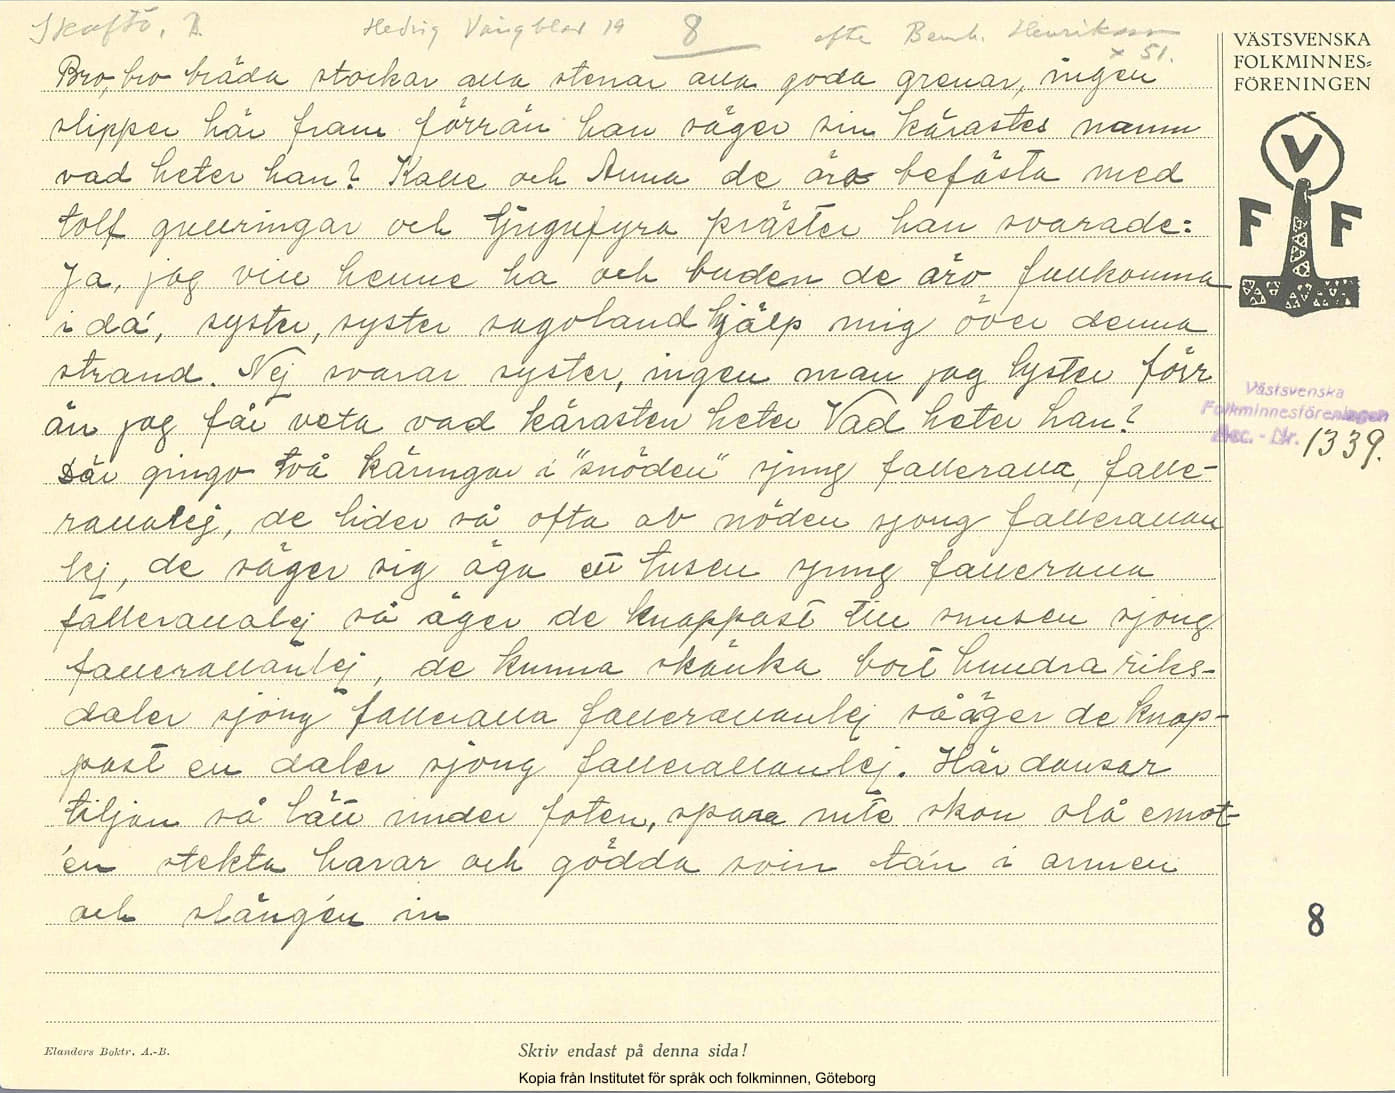 Skaftö, B. Hedvig Vängblad 19 8 efter Bernh. Henriksson
x 51.
Bro, bro bräda stockar alla stenar alla goda grenar, ingen
slipper här fram förrän han säger sin kärastes namn
vad heter han? Kalle och Anna de äro befästa med
tolf gullringar och tjugufyra präster han svarade:
Ja, jag vill henne ha och buden de äro fullkomna
i då, syster, syster sagoland hjälp mig över denna
strand. Nej svarar syster, ingen man jag lyster förr
än jag får veta vad kärasten heter Vad heter han?
Där gingo två käringar i "snöden" sjung falleralla, falle-
rallalej, de lider så ofta av nöden sjong fallerallan
lej, de säger sig äga ett tusen sjung falleralla
fallerallalej så äger de knappast till snusen sjong
fallerallanlej, de kunna skänka bort hundra riks-
daler sjong falleralla fallerallanlej så äger de knap-
past en daler sjong fallerallanlej. Här dansar
tiljan så lätt under foten, spara inte skon slå emot-
én stekta harar och gödda svin tán i armen
och slängén in
VÄSTSVENSKA
FOLKMINNES=
FÖRENINGEN
V
F F
Västsvenska
Folkminnesföreningen
Acc. - Nr. 1339.
8
Elanders Boktr. A.-B.
Skriv endast på denna sida!
Kopia från Institutet för språk och folkminnen, Göteborg